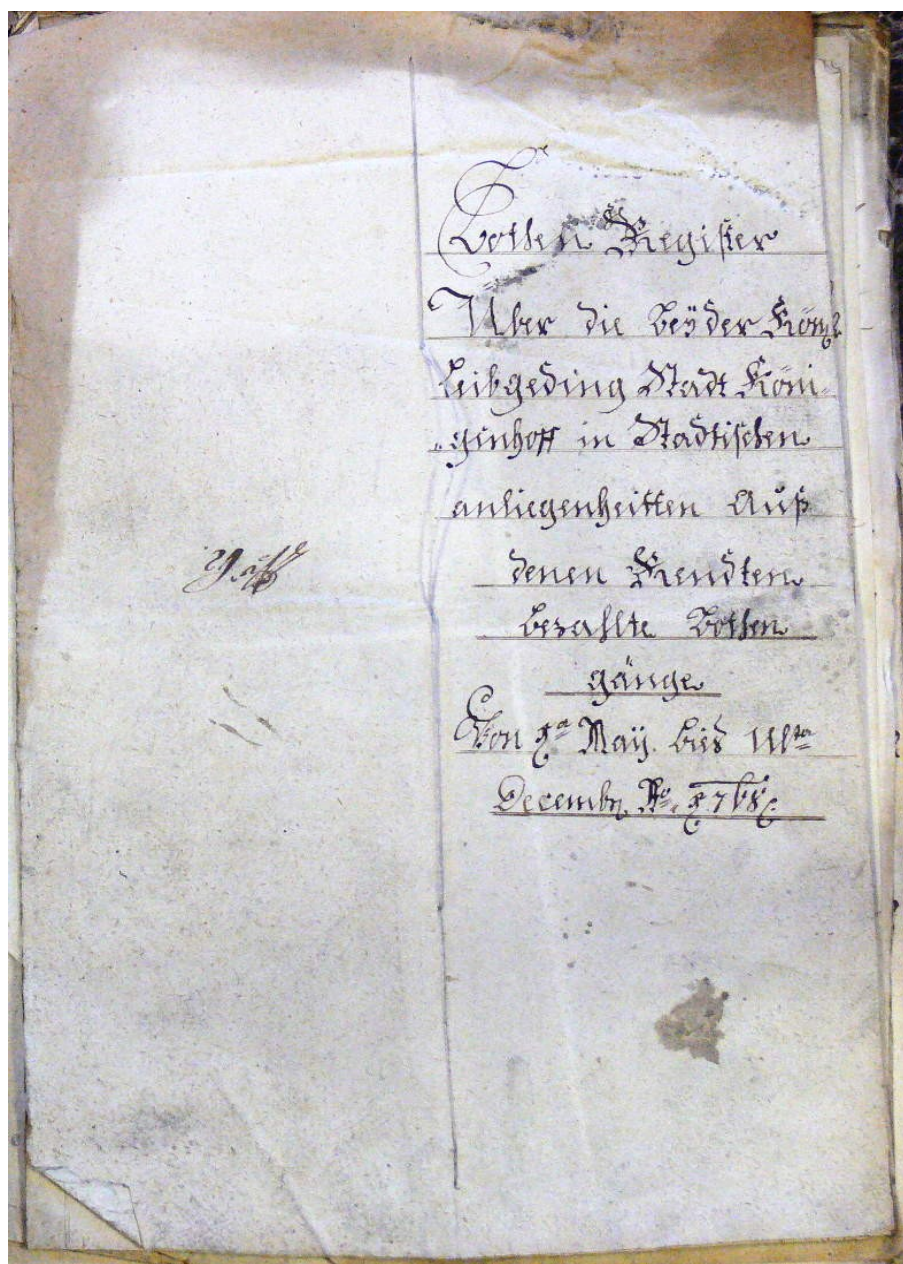 Bothen Register
Uber die Beÿder Königl
Leibgeding Stadt Köni-
-genhoff in Stadtischen
anliegenheitten Auß
denen Rendten
bezahlte Bothen
gänge
Von 1ª Maÿ bis Ult:
Decembr: Aº 1768